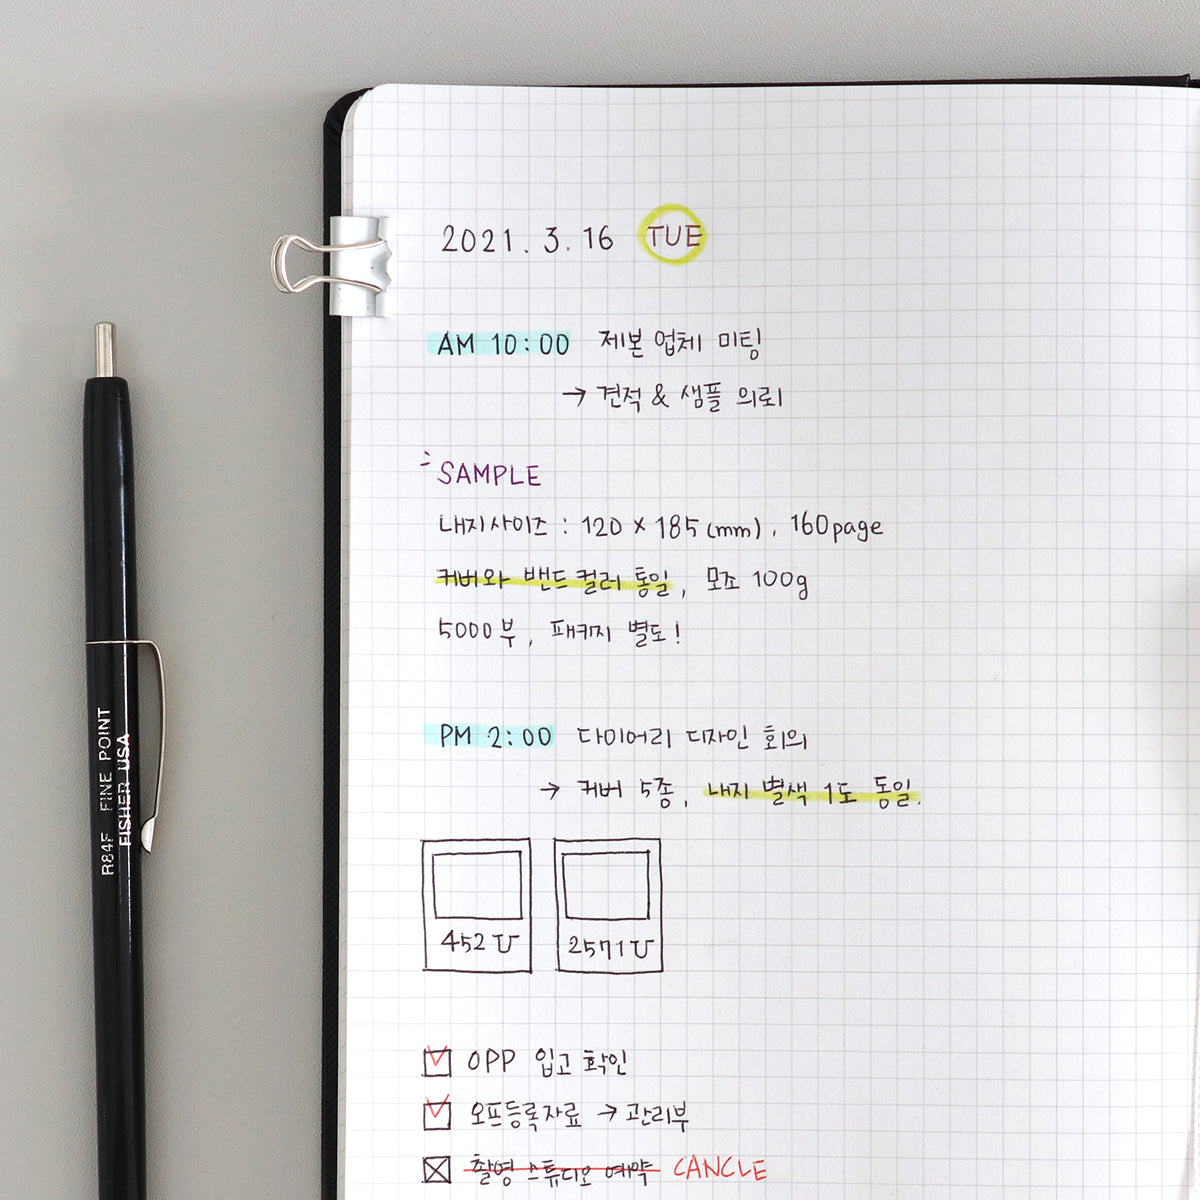 2021. 3. 16 TUE
AM 10:00 제본 업체 미팅
→ 견적 & 샘플 의뢰
SAMPLE
내지사이즈 : 120 x 185 (mm), 160page
커버와 밴드 컬러 통일, 모조 100g
5000부, 패키지 별도!
PM 2:00 다이어리 디자인 회의
→ 커버 5종, 내지 별색 1도 동일.
452U 2571U
OPP 입고 확인
오프등록자료 → 관리부
촬영 스튜디오 예약 CANCLE
R84F FINE POINT
FISHER USA